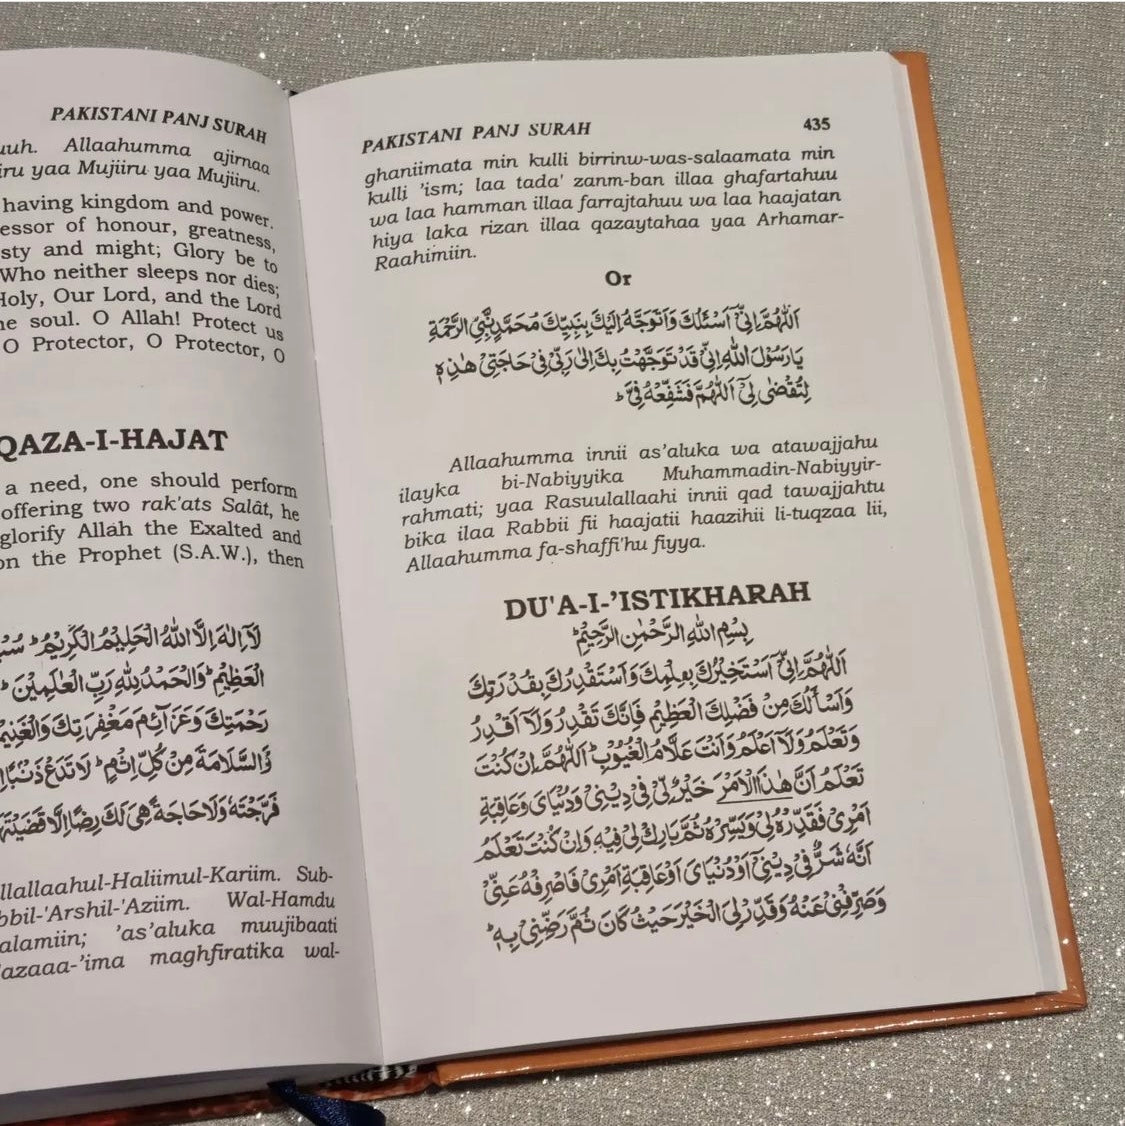 PAKISTANI PANJ SURAH
uuh. Allaahumma ajirnaa
iru yaa Mujiiru yaa Mujiiru.
having kingdom and power.
essor of honour, greatness,
sty and might; Glory be to
Who neither sleeps nor dies;
Holy, Our Lord, and the Lord
he soul. O Allah! Protect us
O Protector, O Protector, O
QAZA-I-HAJAT
a need, one should perform
offering two rak'ats Salât, he
glorify Allah the Exalted and
on the Prophet (S.A.W.), then
لَآ اِلٰهَ اِلَّا اللّٰهُ الْحَلِيْمُ الْكَرِيْمُ ؕ
الْعَظِيْمِ ؕ وَالْحَمْدُ لِلّٰهِ رَبِّ الْعٰلَمِيْنَ ؕ
رَحْمَتِكَ وَعَزَآئِمَ مَغْفِرَتِكَ وَالْغَنِيْ
وَّالسَّلَامَةَ مِنْ كُلِّ اِثْمٍ ؕ لَا تَدَعْ ذَنْبًا
فَرَّجْتَهٗ وَلَا حَاجَةً هِىَ لَكَ رِضًا اِلَّا قَضَيْتَهَا
llallaahul-Haliimul-Kariim. Sub-
bbil-'Arshil-'Aziim. Wal-Hamdu
alamiin; 'as'aluka muujibaati
'azaaa-'ima maghfiratika wal-
PAKISTANI PANJ SURAH 435
ghaniimata min kulli birrinw-was-salaamata min
kulli 'ism; laa tada' zanm-ban illaa ghafartahuu
wa laa hamman illaa farrajtahuu wa laa haajatan
hiya laka rizan illaa qazaytahaa yaa Arhamar-
Raahimiin.
Or
اَللّٰهُمَّ اِنِّىْٓ اَسْئَلُكَ وَاَتَوَجَّهُ اِلَيْكَ بِنَبِيِّكَ مُحَمَّدٍ نَّبِىِّ الرَّحْمَةِ
يَا رَسُوْلَ اللّٰهِ اِنِّىْ قَدْ تَوَجَّهْتُ بِكَ اِلٰى رَبِّىْ فِىْ حَاجَتِىْ هٰذِهٖ
لِتُقْضٰى لِىْٓ اَللّٰهُمَّ فَشَفِّعْهُ فِىَّ ؕ
Allaahumma innii as'aluka wa atawajjahu
ilayka bi-Nabiyyika Muhammadin-Nabiyyir-
rahmati; yaa Rasuulallaahi innii qad tawajjahtu
bika ilaa Rabbii fii haajatii haazihii li-tuqzaa lii,
Allaahumma fa-shaffi'hu fiyya.
DU'A-I-'ISTIKHARAH
بِسْمِ اللّٰهِ الرَّحْمٰنِ الرَّحِيْمِ ؕ
اَللّٰهُمَّ اِنِّىْٓ اَسْتَخِيْرُكَ بِعِلْمِكَ وَاَسْتَقْدِرُكَ بِقُدْرَتِكَ
وَاَسْاَلُكَ مِنْ فَضْلِكَ الْعَظِيْمِ فَاِنَّكَ تَقْدِرُ وَلَآ اَقْدِرُ
وَتَعْلَمُ وَلَآ اَعْلَمُ وَاَنْتَ عَلَّامُ الْغُيُوْبِ ؕ اَللّٰهُمَّ اِنْ كُنْتَ
تَعْلَمُ اَنَّ هٰذَا الْاَمْرَ خَيْرٌ لِّىْ فِىْ دِيْنِىْ وَدُنْيَاىَ وَعَاقِبَةِ
اَمْرِىْ فَقَدِّرْهُ لِىْ وَيَسِّرْهُ ثُمَّ بَارِكْ لِىْ فِيْهِ وَاِنْ كُنْتَ تَعْلَمُ
اَنَّهٗ شَرٌّ فِىْ دِيْنِىْٓ اَوْ دُنْيَاىَ اَوْ عَاقِبَةِ اَمْرِىْ فَاصْرِفْهُ عَنِّىْ
وَصَرِّفْنِىْ عَنْهُ وَقَدِّرْ لِىَ الْخَيْرَ حَيْثُ كَانَ ثُمَّ رَضِّنِىْ بِهٖ ؕ